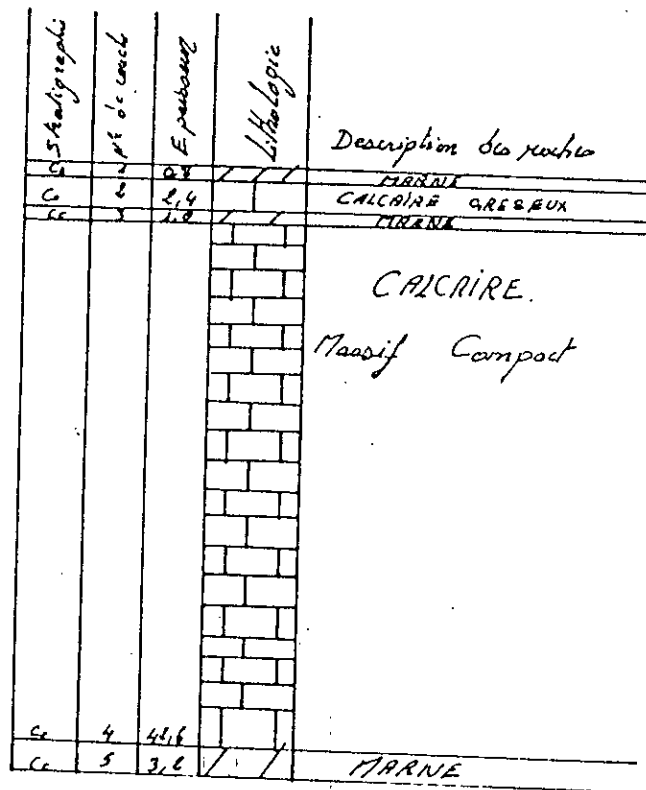 Stratigraphi
N° de couch
Epaisseur
Lithologie
Description des roches
MARNE
C. 2 2,4 CALCAIRE GRESEUX
3 MARNE
CALCAIRE.
Massif Compact
Cc 4
Cc 5 MARNE